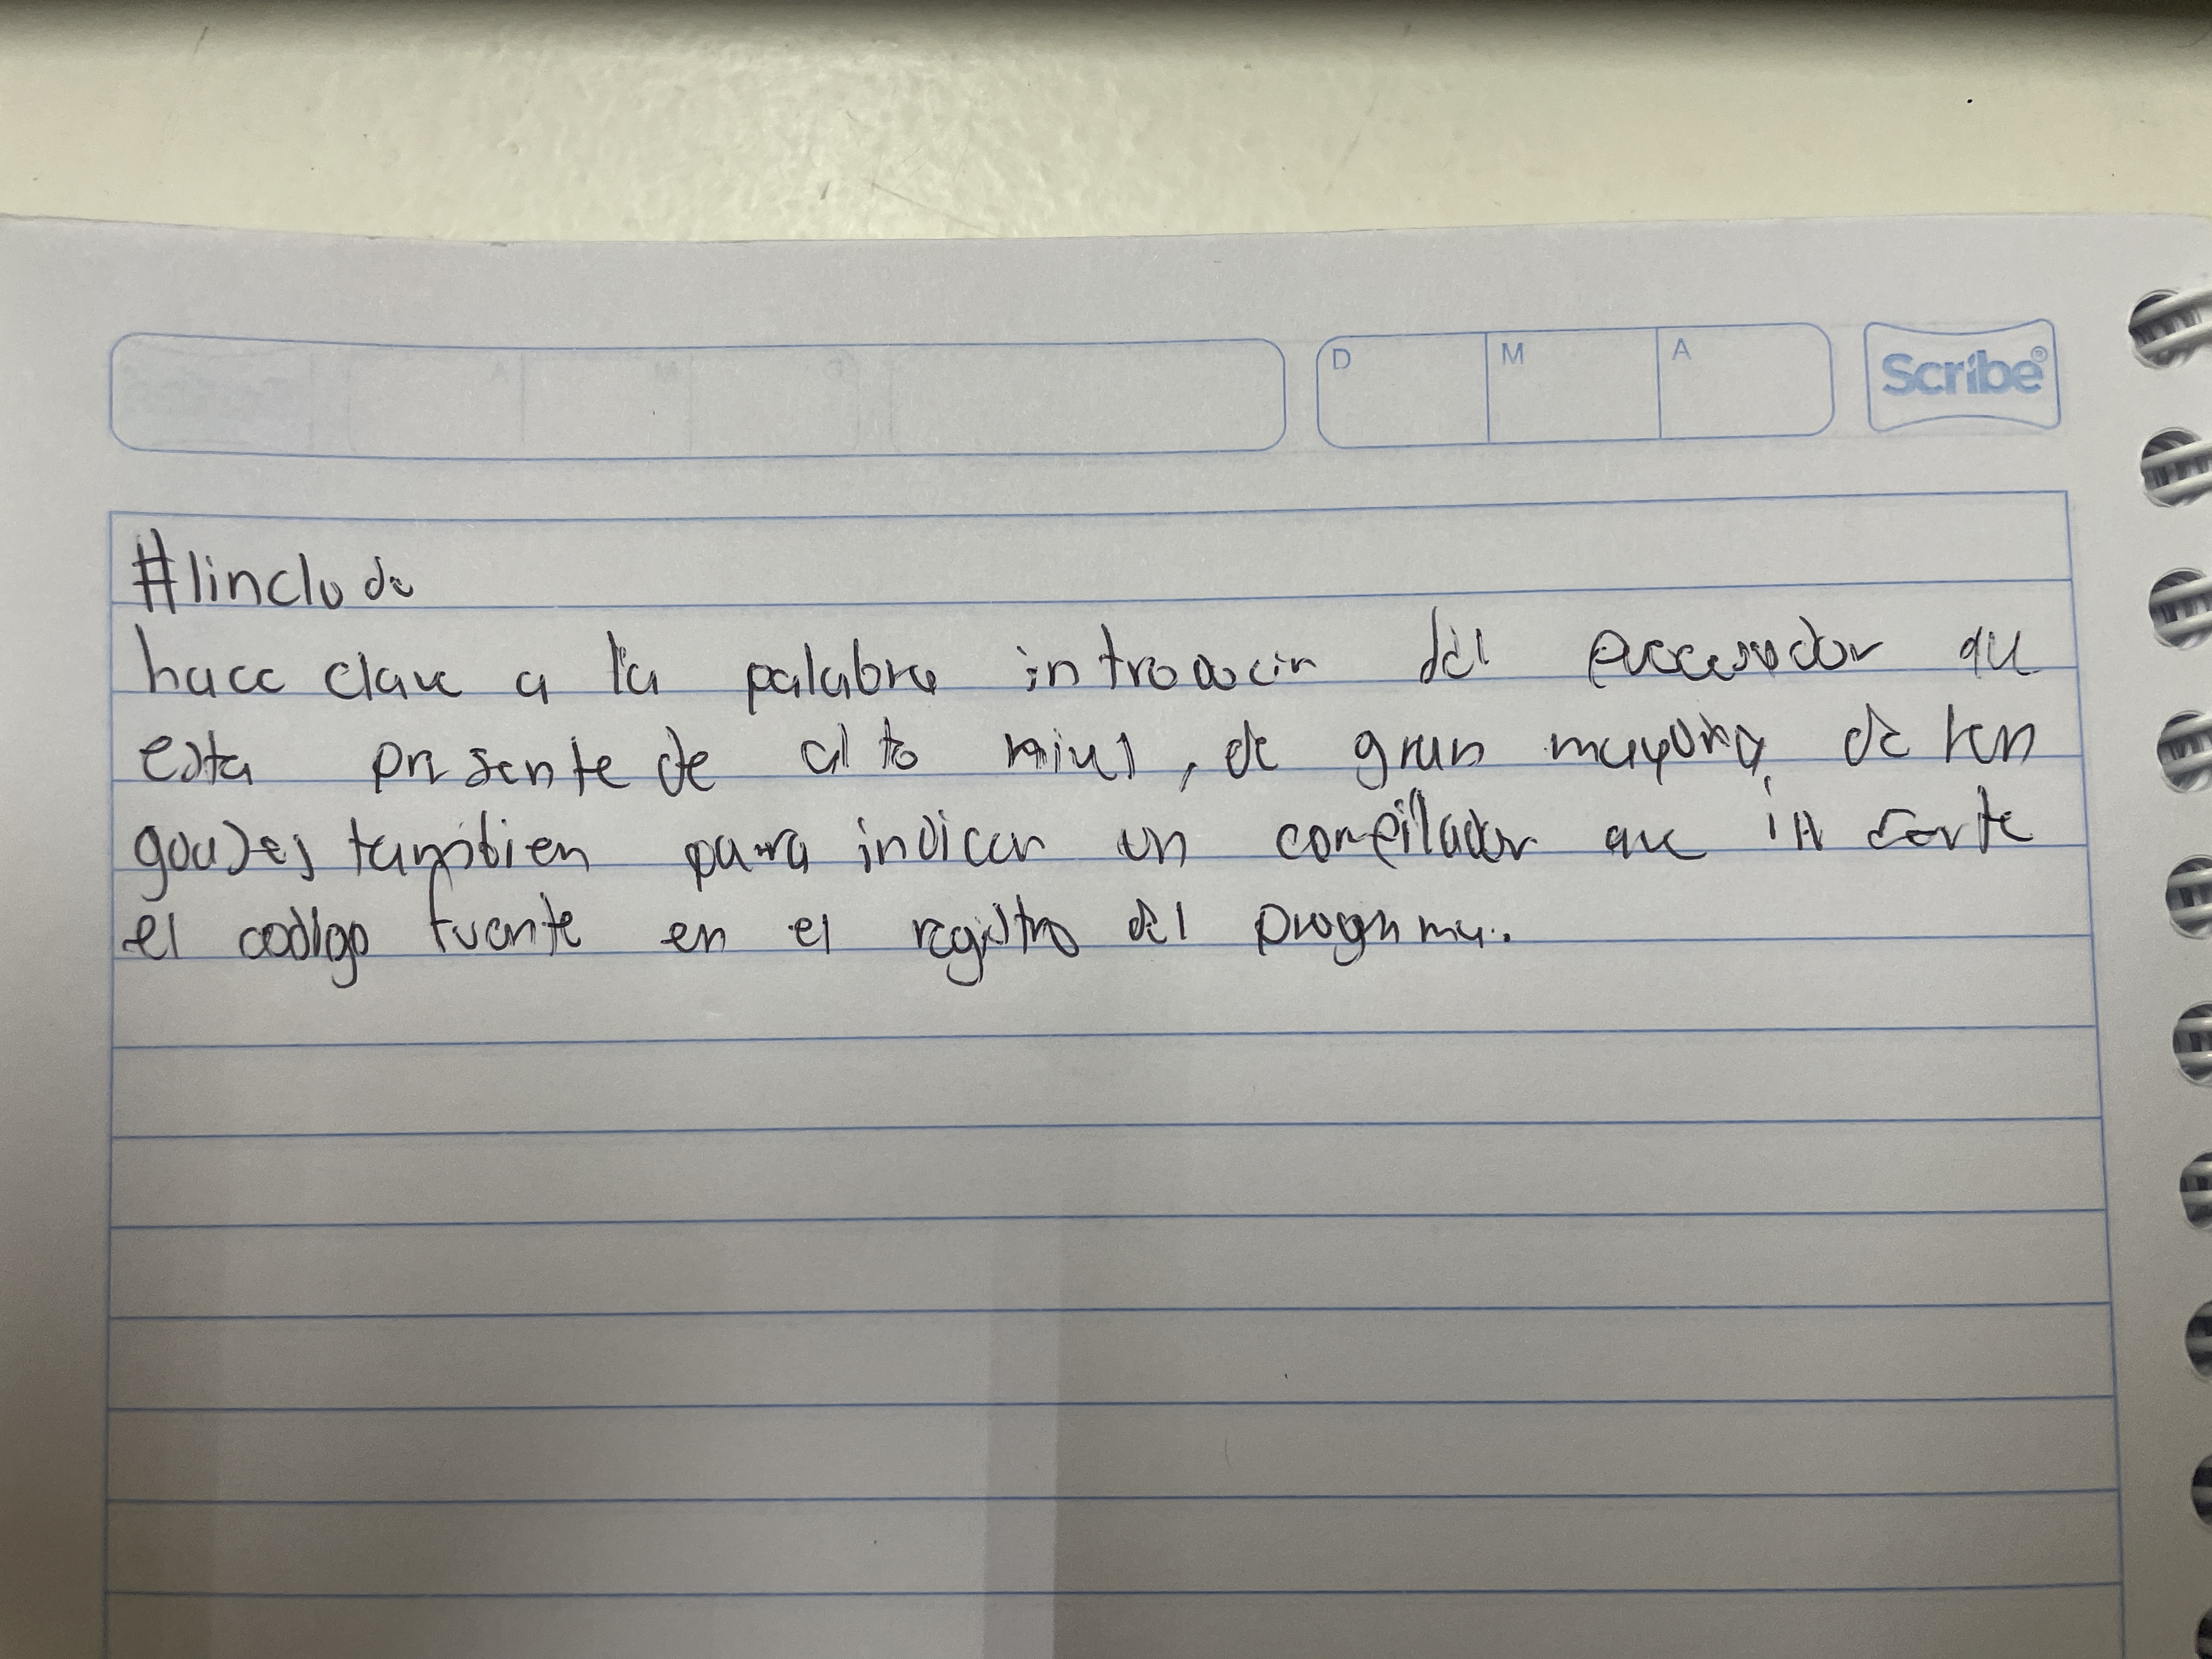 D M A Scribe®
#Iinclude
hace clave a la palabra introducir del procesador que
esta presente de alto nivel, de gran mayoria de len
guajes tambien para indicar un compilador que in serte
el codigo fuente en el registro del programa.